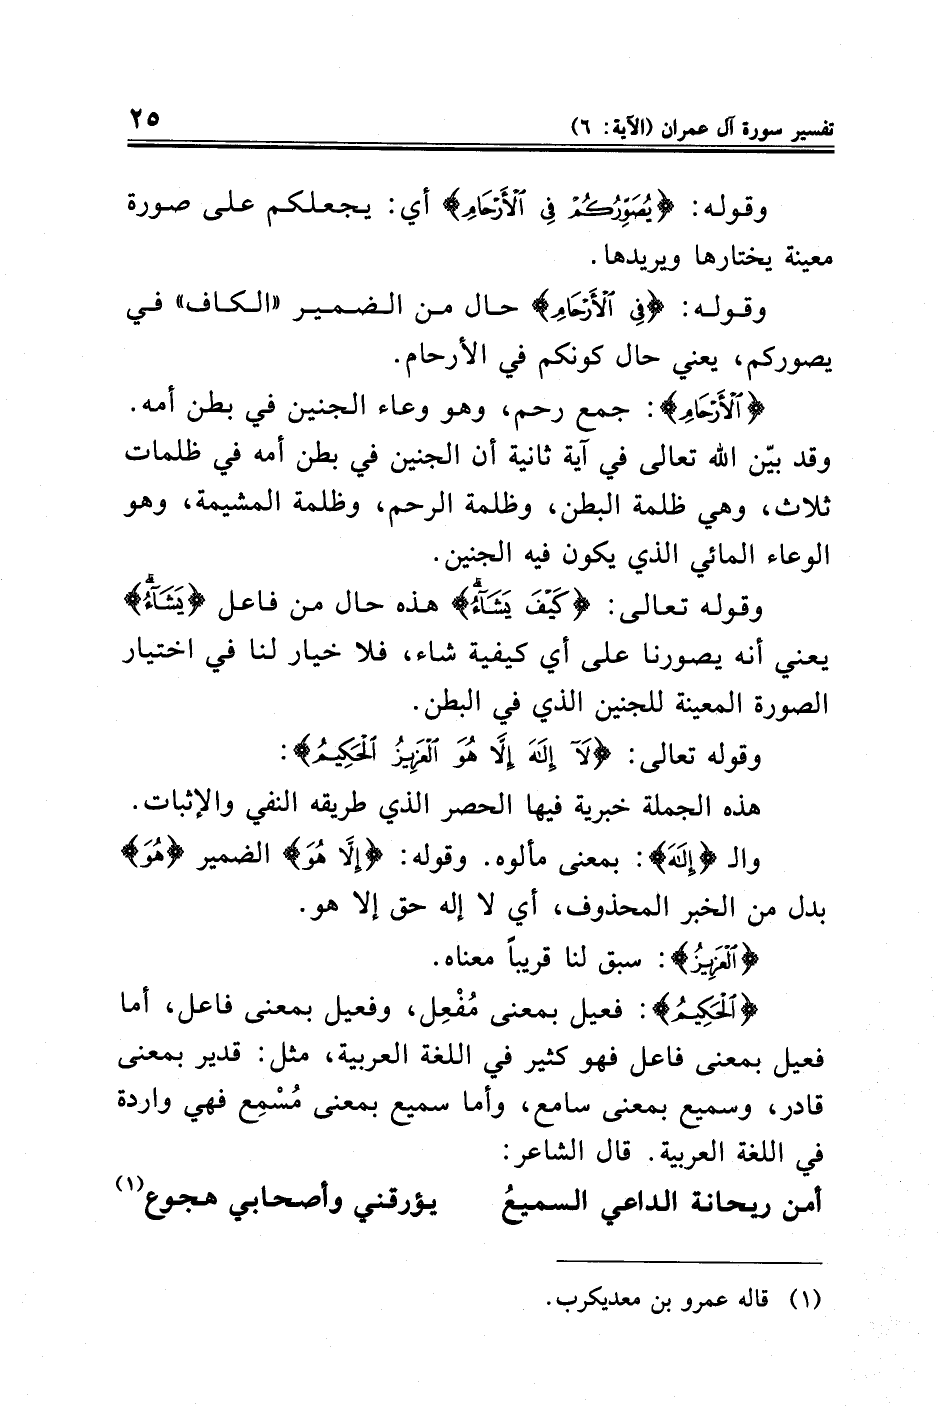 تفسير سورة آل عمران (الآية: ٦)
٢٥
وقوله: ﴿يُصَوِّرُكُمْ فِي ٱلْأَرْحَامِ﴾ أي: يجعلكم على صورة
معينة يختارها ويريدها.
وقوله: ﴿فِي ٱلْأَرْحَامِ﴾ حال من الضمير «الكاف» في
يصوركم، يعني حال كونكم في الأرحام.
﴿ٱلْأَرْحَامِ﴾: جمع رحم، وهو وعاء الجنين في بطن أمه.
وقد بيّن الله تعالى في آية ثانية أن الجنين في بطن أمه في ظلمات
ثلاث، وهي ظلمة البطن، وظلمة الرحم، وظلمة المشيمة، وهو
الوعاء المائي الذي يكون فيه الجنين.
وقوله تعالى: ﴿كَيْفَ يَشَآءُ﴾ هذه حال من فاعل ﴿يَشَآءُ﴾
يعني أنه يصورنا على أي كيفية شاء، فلا خيار لنا في اختيار
الصورة المعينة للجنين الذي في البطن.
وقوله تعالى: ﴿لَآ إِلَٰهَ إِلَّا هُوَ ٱلْعَزِيزُ ٱلْحَكِيمُ﴾:
هذه الجملة خبرية فيها الحصر الذي طريقه النفي والإثبات.
والـ ﴿إِلَٰهَ﴾: بمعنى مألوه. وقوله: ﴿إِلَّا هُوَ﴾ الضمير ﴿هُوَ﴾
بدل من الخبر المحذوف، أي لا إله حق إلا هو.
﴿ٱلْعَزِيزُ﴾: سبق لنا قريباً معناه.
﴿ٱلْحَكِيمُ﴾: فعيل بمعنى مُفْعِل، وفعيل بمعنى فاعل، أما
فعيل بمعنى فاعل فهو كثير في اللغة العربية، مثل: قدير بمعنى
قادر، وسميع بمعنى سامع، وأما سميع بمعنى مُسْمِع فهي واردة
في اللغة العربية. قال الشاعر:
أمن ريحانة الداعي السميعُ يؤرقني وأصحابي هجوع(١)
(١) قاله عمرو بن معديكرب.